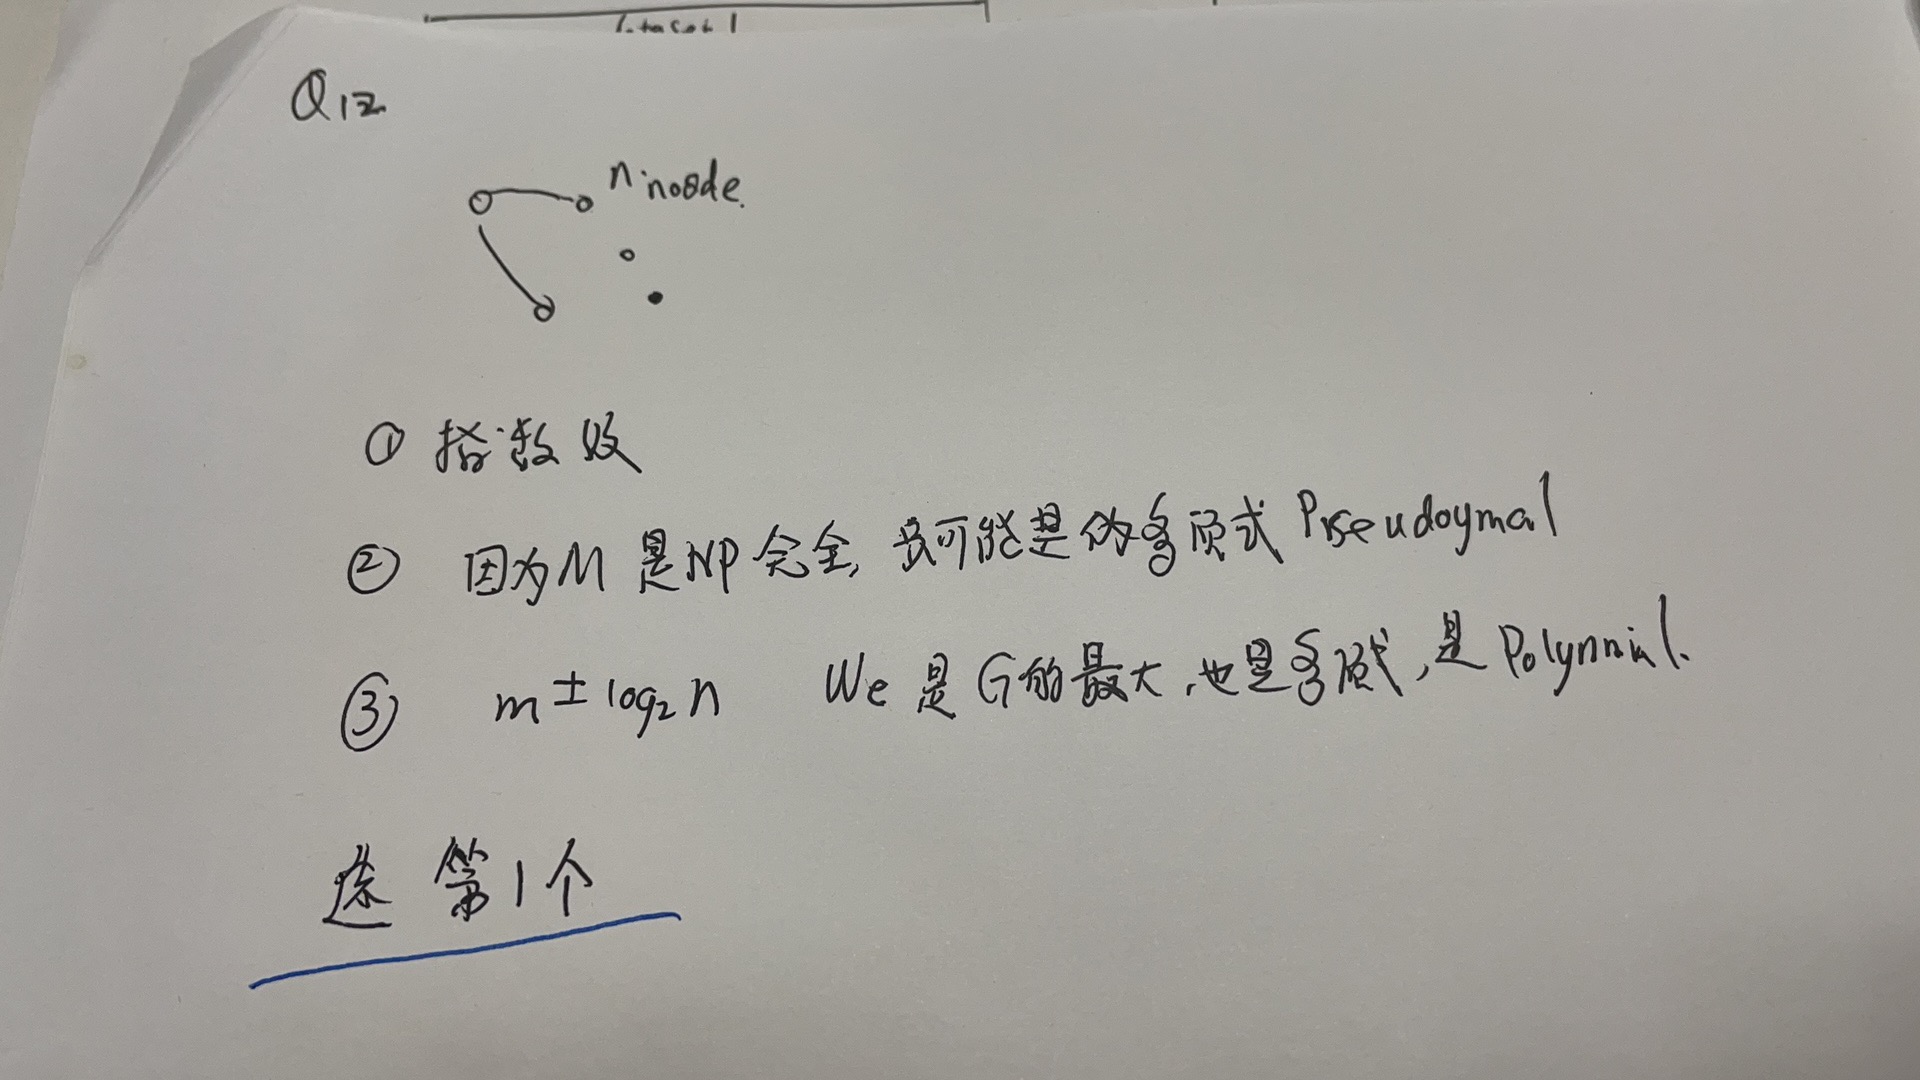 Q12
n·node.
① 指数级
② 因为M 是NP完全, 只可能是伪多项式 Pseudoymal
③ m ± log₂ n We 是 G的最大,也是多项式,是 Polynnial.
选 第1个